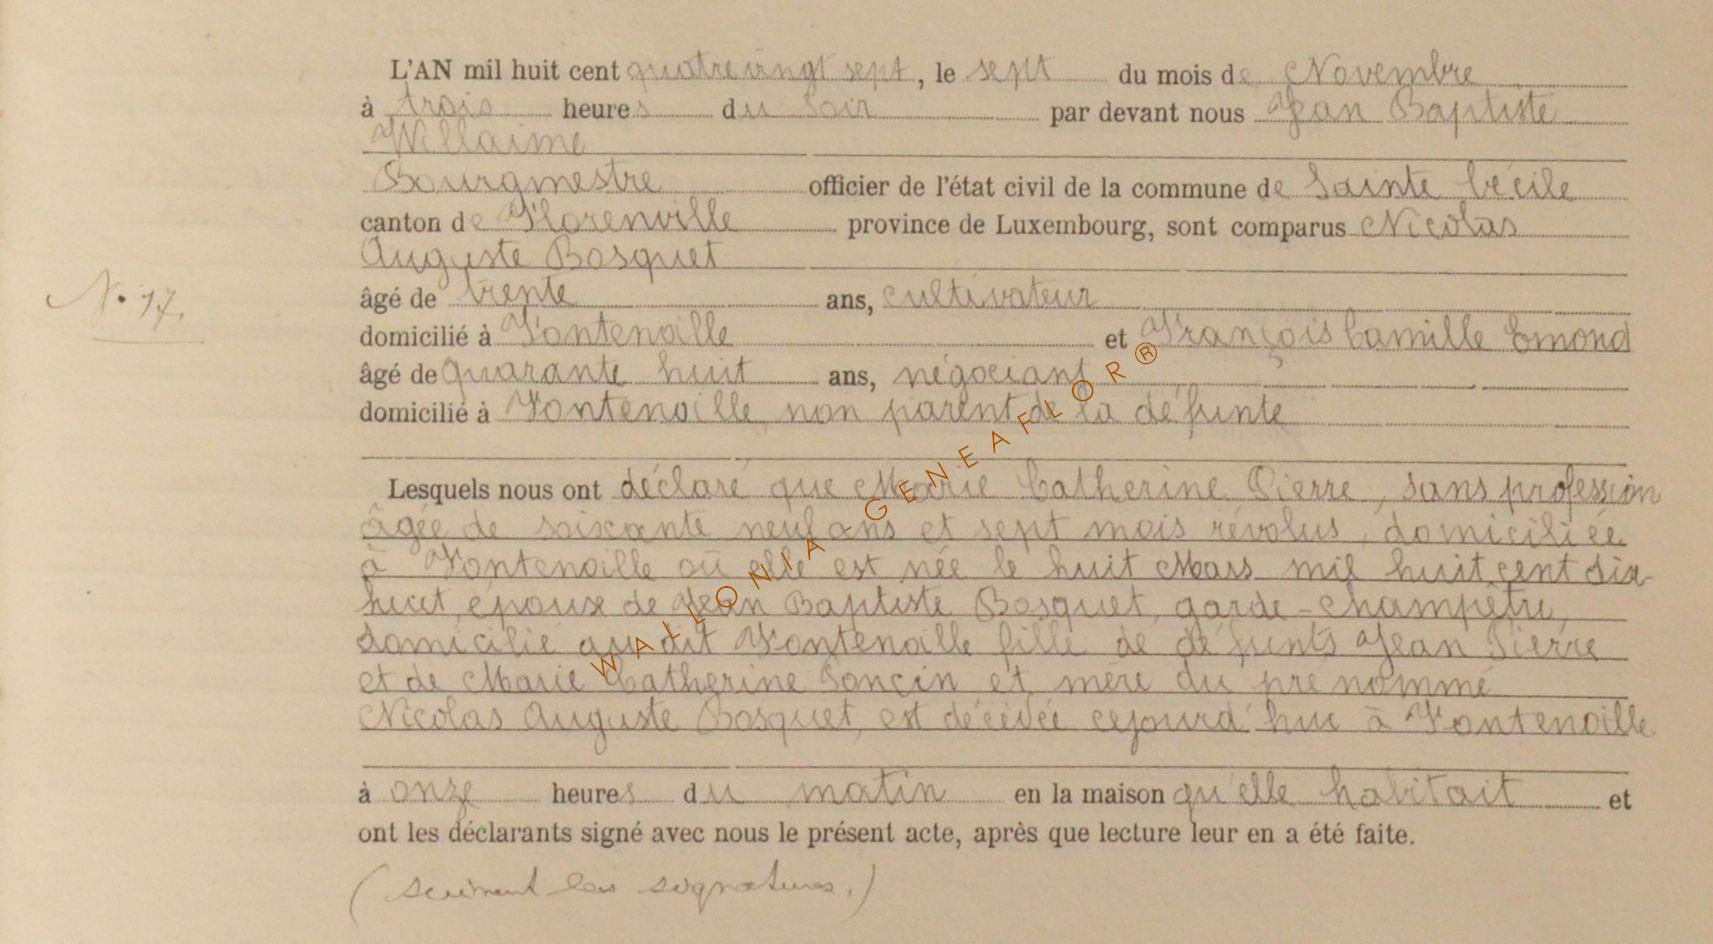 L'AN mil huit cent quatre vingt sept, le sept du mois de Novembre
à trois heures du soir par devant nous Jean Baptiste
Willaime
Bourgmestre officier de l'état civil de la commune de Sainte Cécile
canton de Florenville province de Luxembourg, sont comparus Nicolas
Auguste Bosquet
N. 17.
âgé de trente ans, cultivateur
domicilié à Fontenoille et François Camille Emond
âgé de quarante huit ans, négociant
domicilié à Fontenoille non parent de la défunte
Lesquels nous ont déclaré que Marie Catherine Pierre, sans profession
âgée de soixante neuf ans et sept mois révolus, domiciliée
à Fontenoille où elle est née le huit Mars mil huit cent dix-
huit, épouse de Jean Baptiste Bosquet, garde-champêtre,
domicilié au dit Fontenoille fille de défunts Jean Pierre
et de Marie Catherine et mère du prénommé
Nicolas Auguste Bosquet, est décédée cejourd'hui à Fontenoille
à onze heures du matin en la maison qu'elle habitait et
ont les déclarants signé avec nous le présent acte, après que lecture leur en a été faite.
(suivent les signatures.)
WALLONIA-GENEAFLOR®